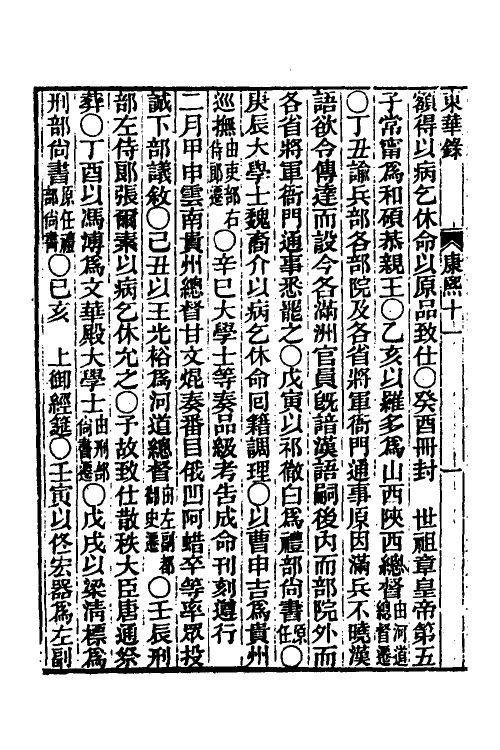 東華錄 康熙十一
額得以病乞休命以原品致仕〇癸酉冊封 世祖章皇帝第五
子常甯爲和碩恭親王〇乙亥以羅多爲山西陝西總督由河道總督遷
〇丁丑諭兵部各部院及各省將軍衙門通事原因滿兵不曉漢
語欲令傳達而設今各滿洲官員旣諳漢語嗣後內而部院外而
各省將軍衙門通事悉罷之〇戊寅以祁徹白爲禮部尙書原任〇
庚辰大學士魏裔介以病乞休命回籍調理〇以曹申吉爲貴州
巡撫由吏部右侍郞遷〇辛巳大學士等奏品級考告成命刊刻遵行
二月甲申雲南貴州總督甘文焜奏番目俄凹阿蜡卒等率眾投
誠下部議敘〇己丑以王光裕爲河道總督由左副都御史遷〇壬辰刑
部左侍郞張爾素以病乞休允之〇予故致仕散秩大臣唐通祭
葬〇丁酉以馮溥爲文華殿大學士由刑部尙書遷〇戊戌以梁清標爲
刑部尙書原任禮部尙書〇己亥 上御經筵〇壬寅以佟宏器爲左副